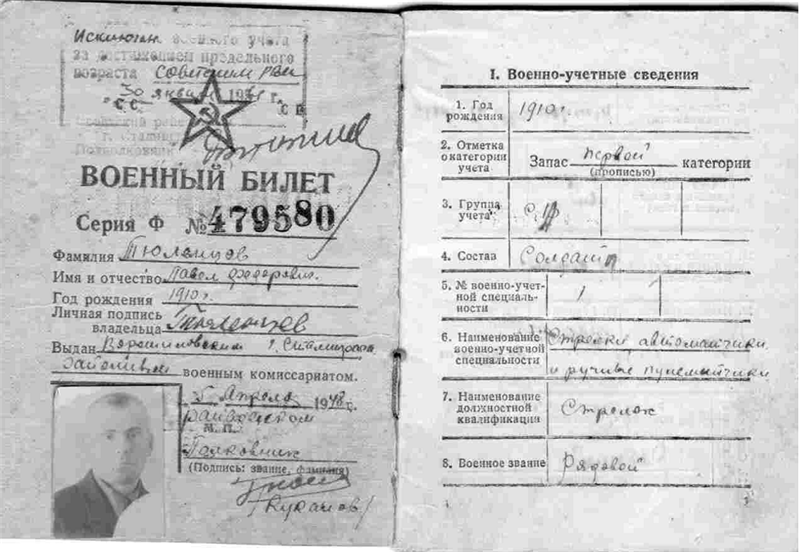 Исключен с воинского учета
за достижением предельного
возраста Советским РВК
30 января 1961 г.
ВОЕННЫЙ БИЛЕТ
Серия Ф № 479580
Фамилия Тюленцев
Имя и отчество Павел Федорович.
Год рождения 1910 г.
Личная подпись
владельца Тюленцев
Выдан Ворошиловским г. Сталинграда
военным комиссариатом.
5 Апреля 1948 г.
М. П.
Полковник
(Подпись: звание, фамилия)
I. Военно-учетные сведения
1. Год
рождения 1910 г.
2. Отметка
о категории
учета Запас первой категории
(прописью)
3. Группа
учета
4. Состав Солдаты
5. № военно-учет-
ной специаль-
ности 1
6. Наименование
военно-учетной
специальности Стрелки, автоматчики
и ручные пулеметчики
7. Наименование
должностной
квалификации Стрелок
8. Военное звание Рядовой